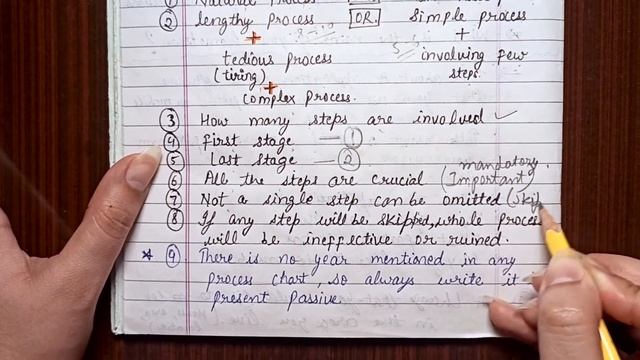 ① Natural Process
② lengthy Process [OR.] Simple process
+ +
tedious process involving few
(tiring) steps.
+
complex process.
③ How many steps are involved ✓
④ first stage — ①
⑤ Last stage — ②
mandatory.
⑥ All the steps are crucial (Important)
⑦ Not a single step can be omitted (Skip
⑧ If any step will be skipped, whole proces
will be ineffective or ruined.
* ⑨ There is no year mentioned in any
process chart, so always write it
present Passive